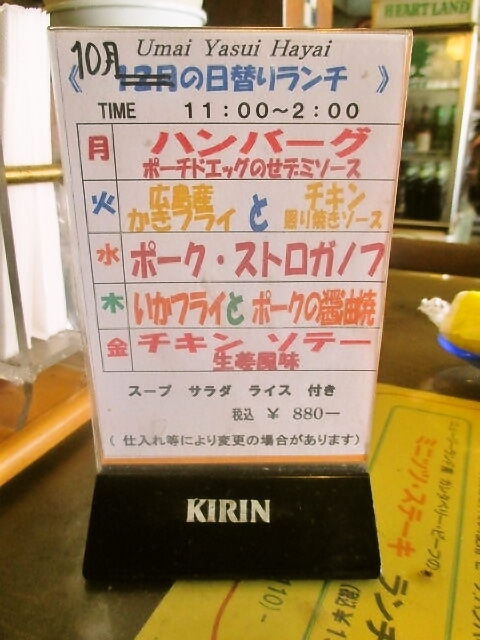 HEARTLAND
Umai Yasui Hayai
《10月の日替りランチ》
TIME 11:00～2:00
月 ハンバーグ
ポーチドエッグのせデミソース
火 広島産 かきフライ と チキン 照り焼きソース
水 ポーク・ストロガノフ
木 いかフライと ポークの醤油焼
金 チキン ソテー
生姜風味
スープ サラダ ライス 付き
税込 ¥ 880―
(仕入れ等により変更の場合があります)
KIRIN
ミニッツ・ステーキ
ランチ